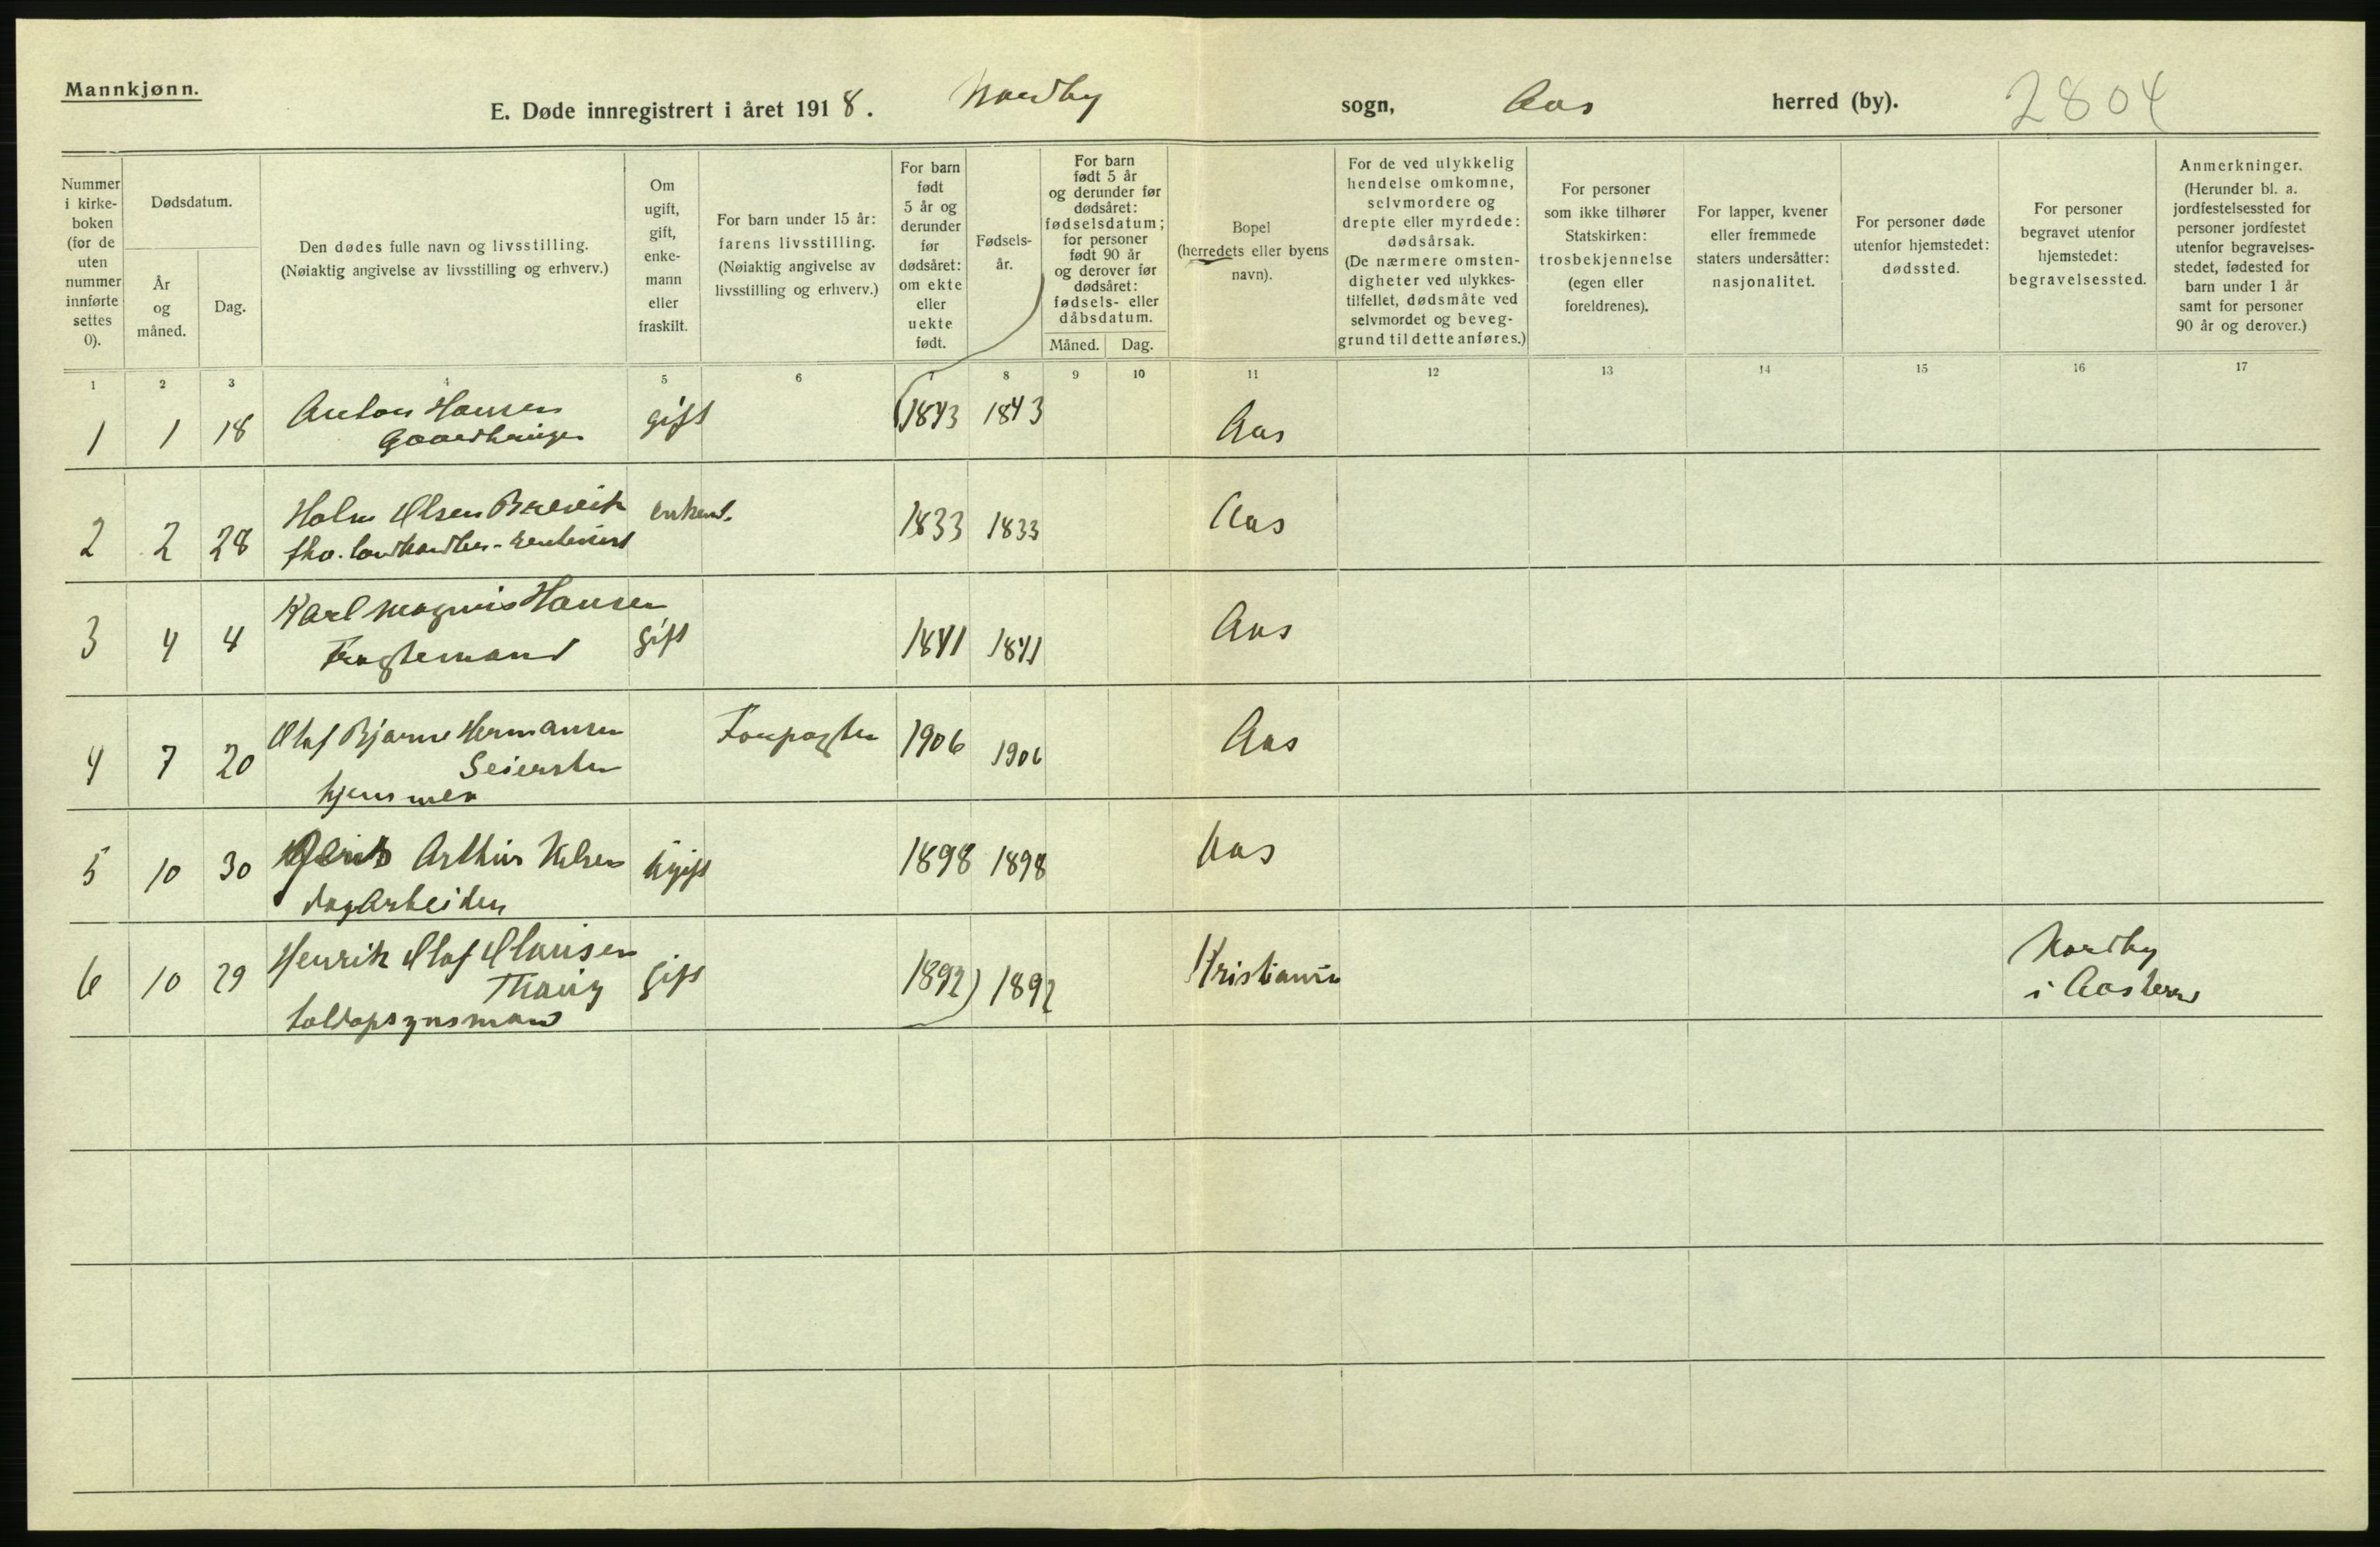 Mannkjønn.
E. Døde innregistrert i året 1918. Nordby sogn, Aas herred (by). 2804
Nummer i kirke-boken (for de uten nummer innførte settes 0).
Dødsdatum.
År og måned.
Dag.
Den dødes fulle navn og livsstilling.
(Nøiaktig angivelse av livsstilling og erhverv.)
Om ugift, gift, enke-mann eller fraskilt.
For barn under 15 år: farens livsstilling. (Nøiaktig angivelse av livsstilling og erhverv.)
For barn født 5 år og derunder før dødsåret: om ekte eller uekte født.
Fødsels-år.
For barn født 5 år og derunder før dødsåret: fødselsdatum; for personer født 90 år og derover før dødsåret: fødsels- eller dåbsdatum.
Måned. Dag.
Bopel (herredets eller byens navn).
For de ved ulykkelig hendelse omkomne, selvmordere og drepte eller myrdede: dødsårsak. (De nærmere omsten-digheter ved ulykkes-tilfellet, dødsmåte ved selvmordet og beveg-grund til dette anføres.)
For personer som ikke tilhører Statskirken: trosbekjennelse (egen eller foreldrenes).
For lapper, kvener eller fremmede staters undersåtter: nasjonalitet.
For personer døde utenfor hjemstedet: dødssted.
For personer begravet utenfor hjemstedet: begravelsessted.
Anmerkninger. (Herunder bl. a. jordfestelsessted for personer jordfestet utenfor begravelses-stedet, fødested for barn under 1 år samt for personer 90 år og derover.)
1 2 3 4 5 6 7 8 9 10 11 12 13 14 15 16 17
1 1 18 Anton Hansen gift 1843 1843 Aas
2 2 28 Holm Olsen Brevik enkem. 1833 1833 Aas
fhv. landhandler - rentenist
3 4 4 Karl Magnus Hansen gift 1841 1841 Aas
Fragtemand
4 7 20 Olaf Bjarne Hermansen Forpagter 1906 1906 Aas
Seiersten
hjemme
5 10 30 Arthur Nilsen ugift 1898 1898 Aas
dagarbeider
6 10 29 Henrik Olaf Olausen gift 1892 1892 Kristiania Nordby
i Aas herred
toldopsynsmand